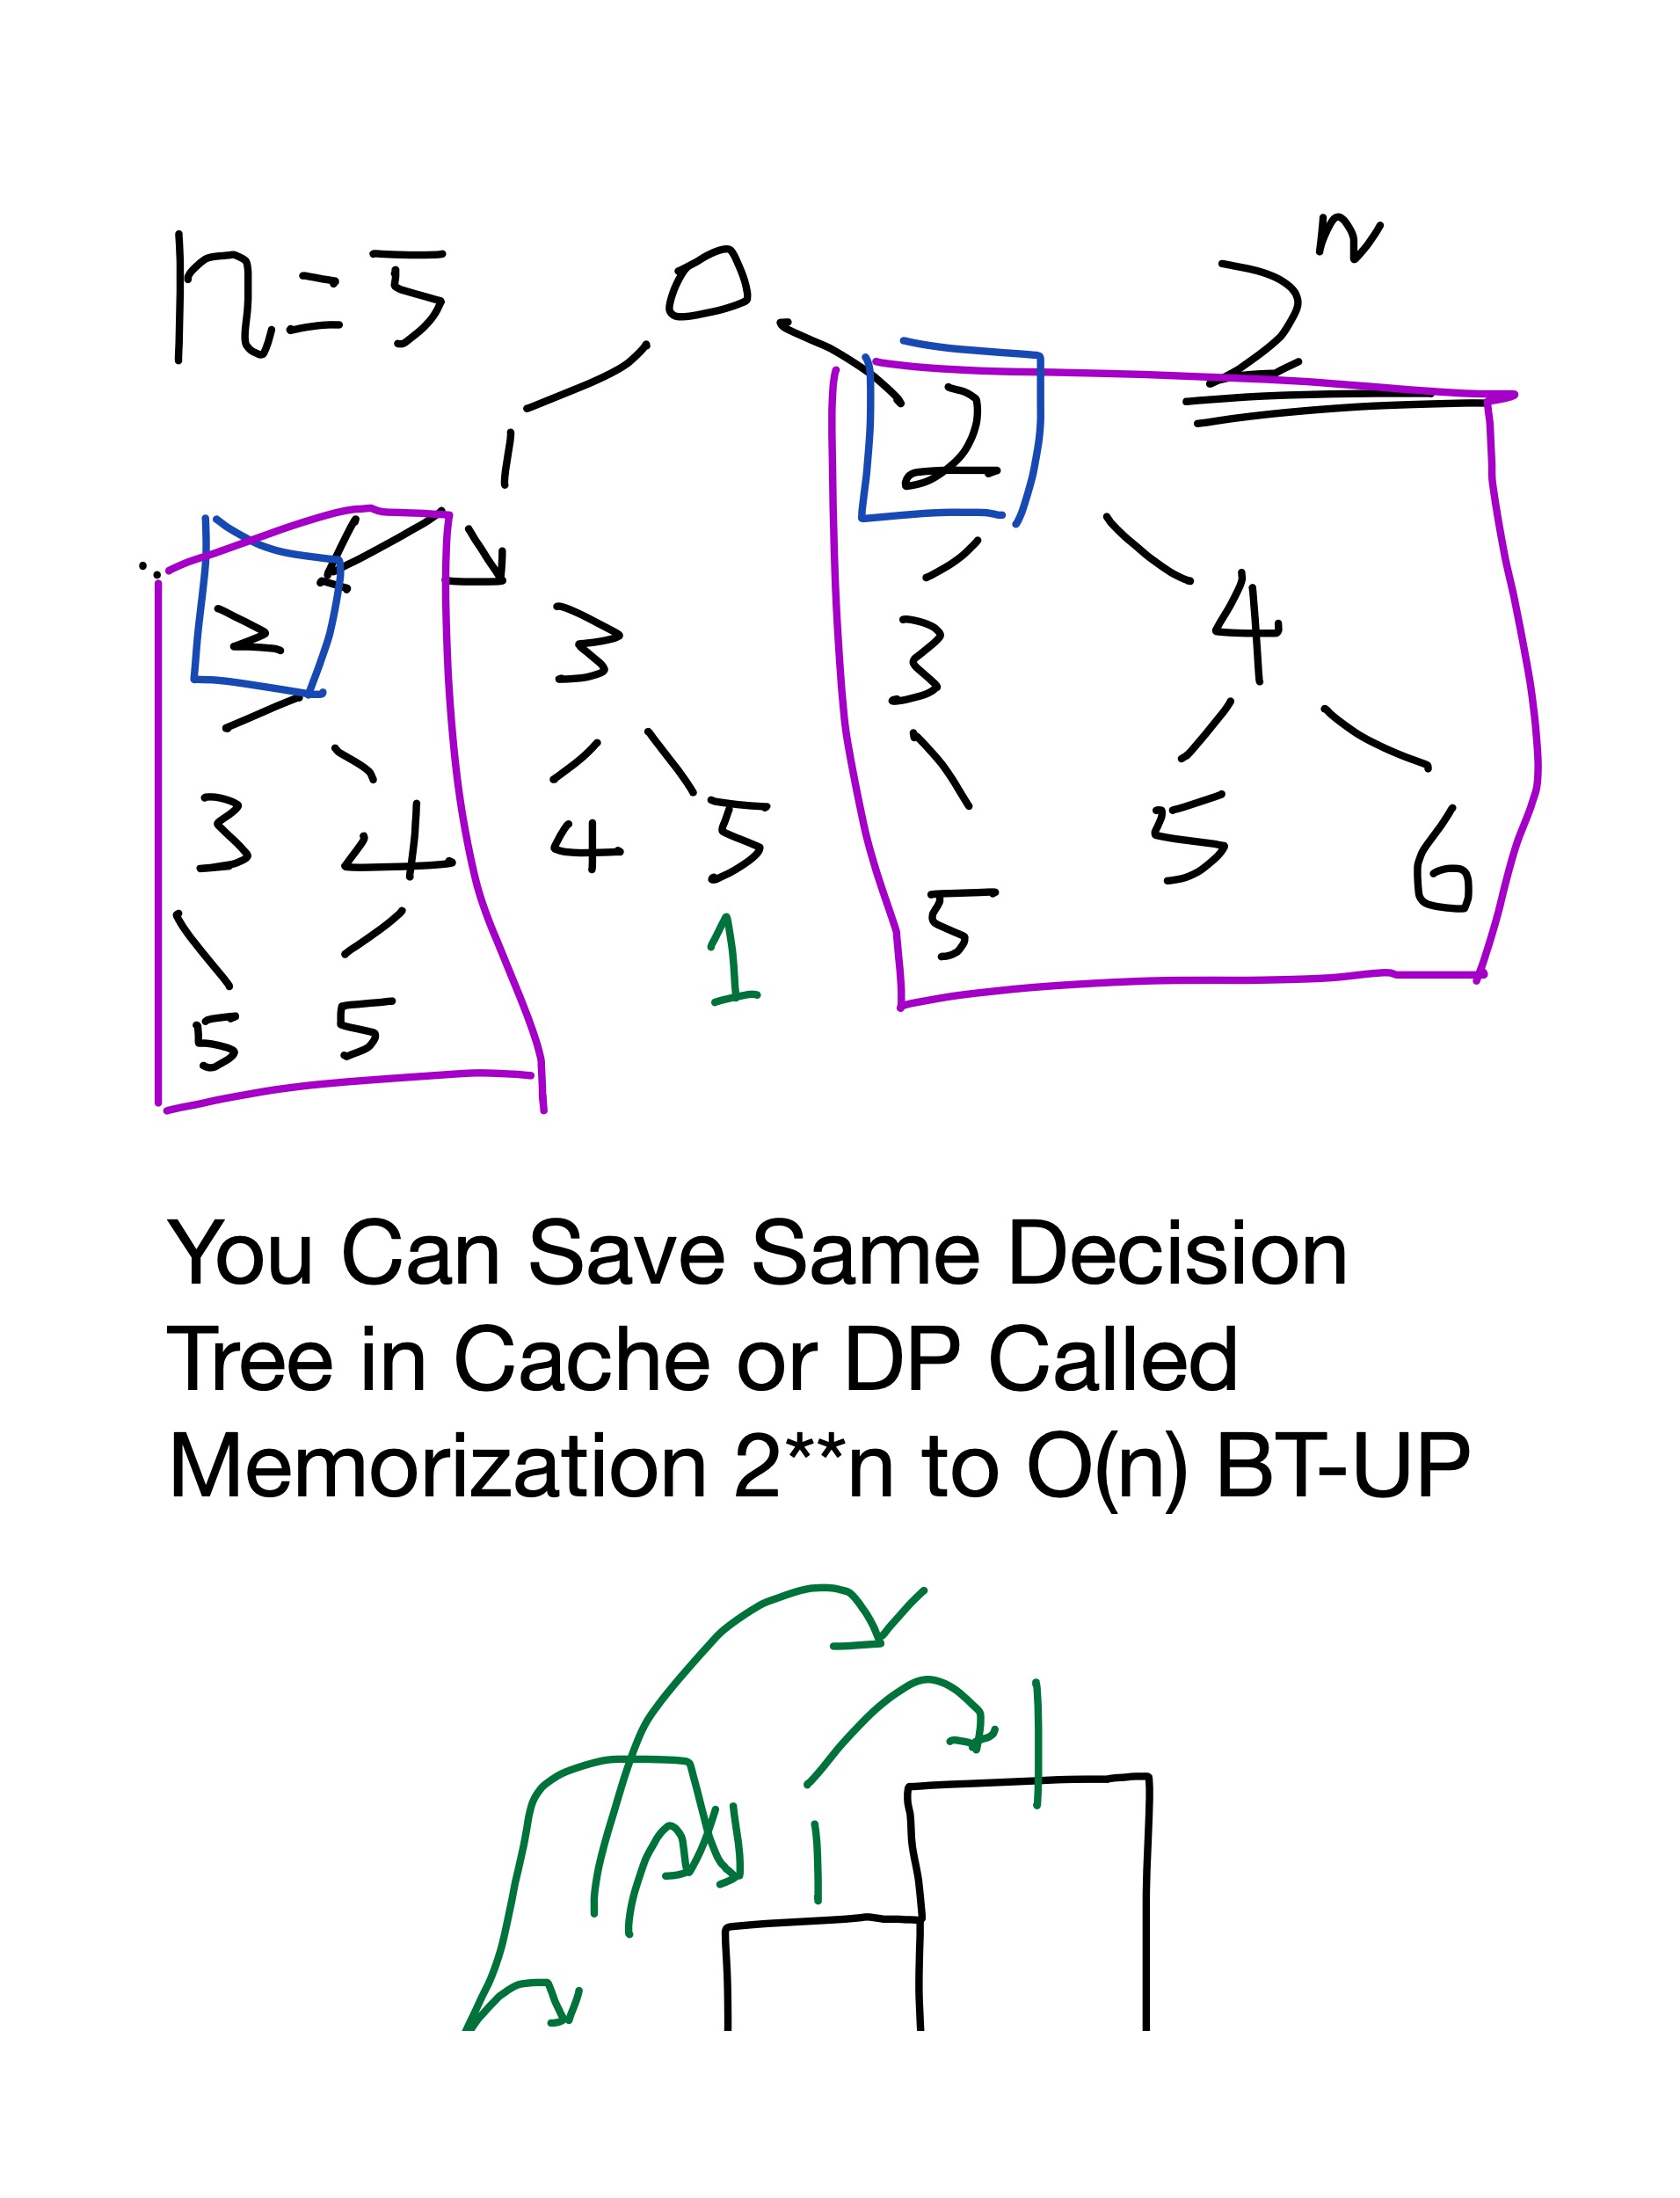 n=5 0 2^n
1 2
2 3 3 4
3 4 4 5 5 5 6
5 5 1
You Can Save Same Decision
Tree in Cache or DP Called
Memorization 2**n to O(n) BT-UP